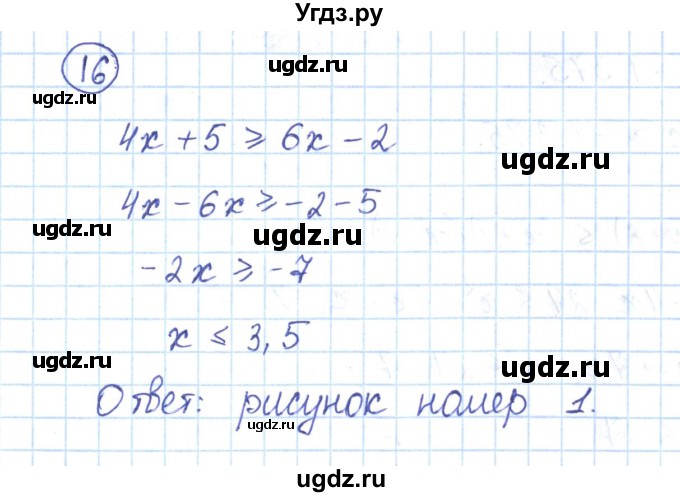 Угдз.ру
16
ugdz.ru
ugdz.ru
ugdz.ru
4x + 5 ⩾ 6x − 2
ugdz.ru
4x − 6x ⩾ −2 − 5
ugdz.ru
ugdz.ru
ugdz.ru
−2x ⩾ −7
x ⩽ 3,5
ugdz.ru
ugdz.ru
Ответ: рисунок номер 1.
ugdz.ru
ugdz.ru